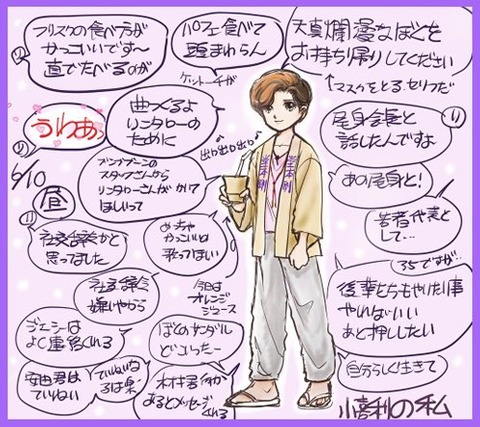 フリスクの食べ方が
かっこいいです〜
直でたべるのが
パフェ食べて
頭まわらん
天真爛漫なぼくを
お持ち帰りしてください
↑マスクをとるセリフだ
うわあ
曲つくるよ
リンタローの
ために
出口出口出口
尾身会長と
話したんですよ
あの尾身と!
6/10
昼
スタッフさんから
リンタローさんが
ほしいって
堂本剛
若者代表と
して…
35ですが…
社交辞令かと
思ってました
めちゃ
かっこいいの
歌ってほしい
社交辞令
嫌いやから
今日は
オレンジ
ジュース
後輩たちもやりたい事
やればいい
あと押ししたい
ぼくのサンダル
どこいったー
自分らしく生きて
ていねい
木村君
あるとメッセージ
くれる
小喜利の私